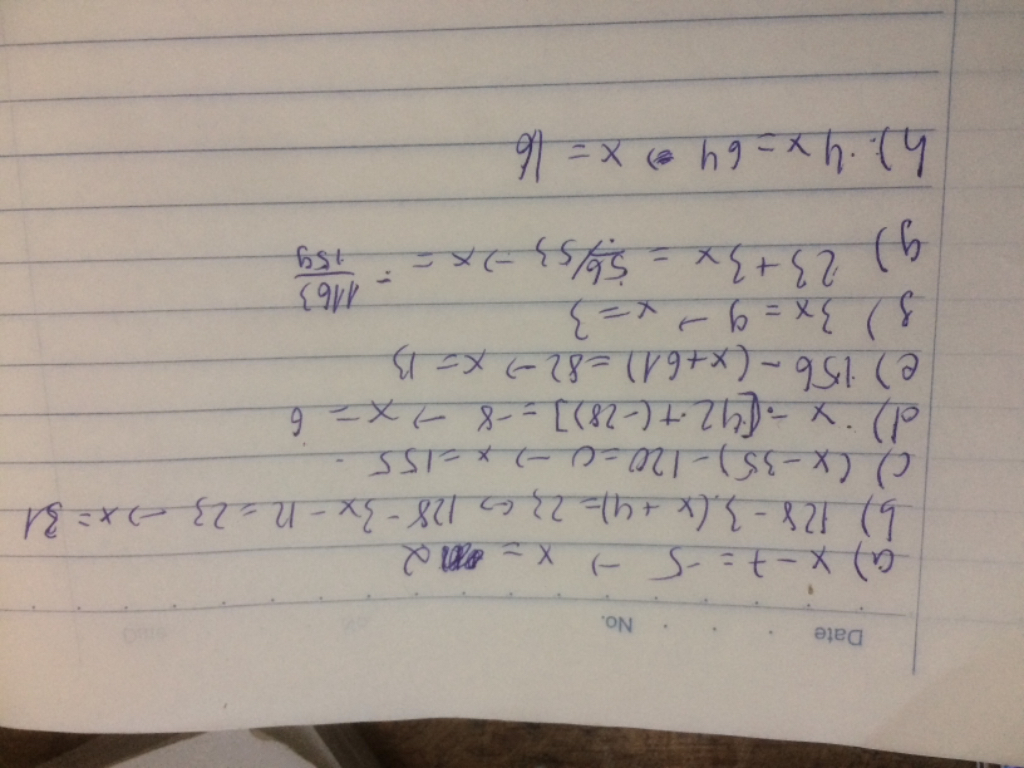 Date No.
a) x - 7 = -5 → x = 2
b) 128 - 3.(x + 4) = 23 ↔ 128 - 3x - 12 = 23 → x = 31
c) (x - 35) - 120 = 0 → x = 155
d) x - [42 + (-28)] = -8 → x = 6
e) 156 - (x + 61) = 82 → x = 13
f) 3x = 9 → x = 3
g) 23 + 3x = 56/53 → x = - 1163/159
h) 4x = 64 → x = 16